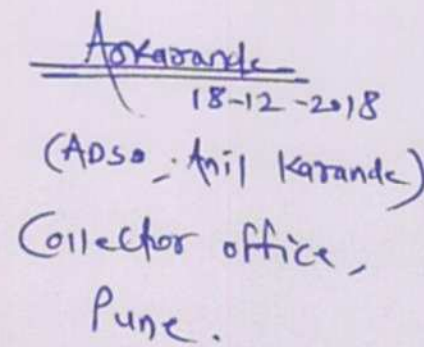 Askarande
18-12-2018
(ADSO, Anil Karande)
Collector office,
Pune.